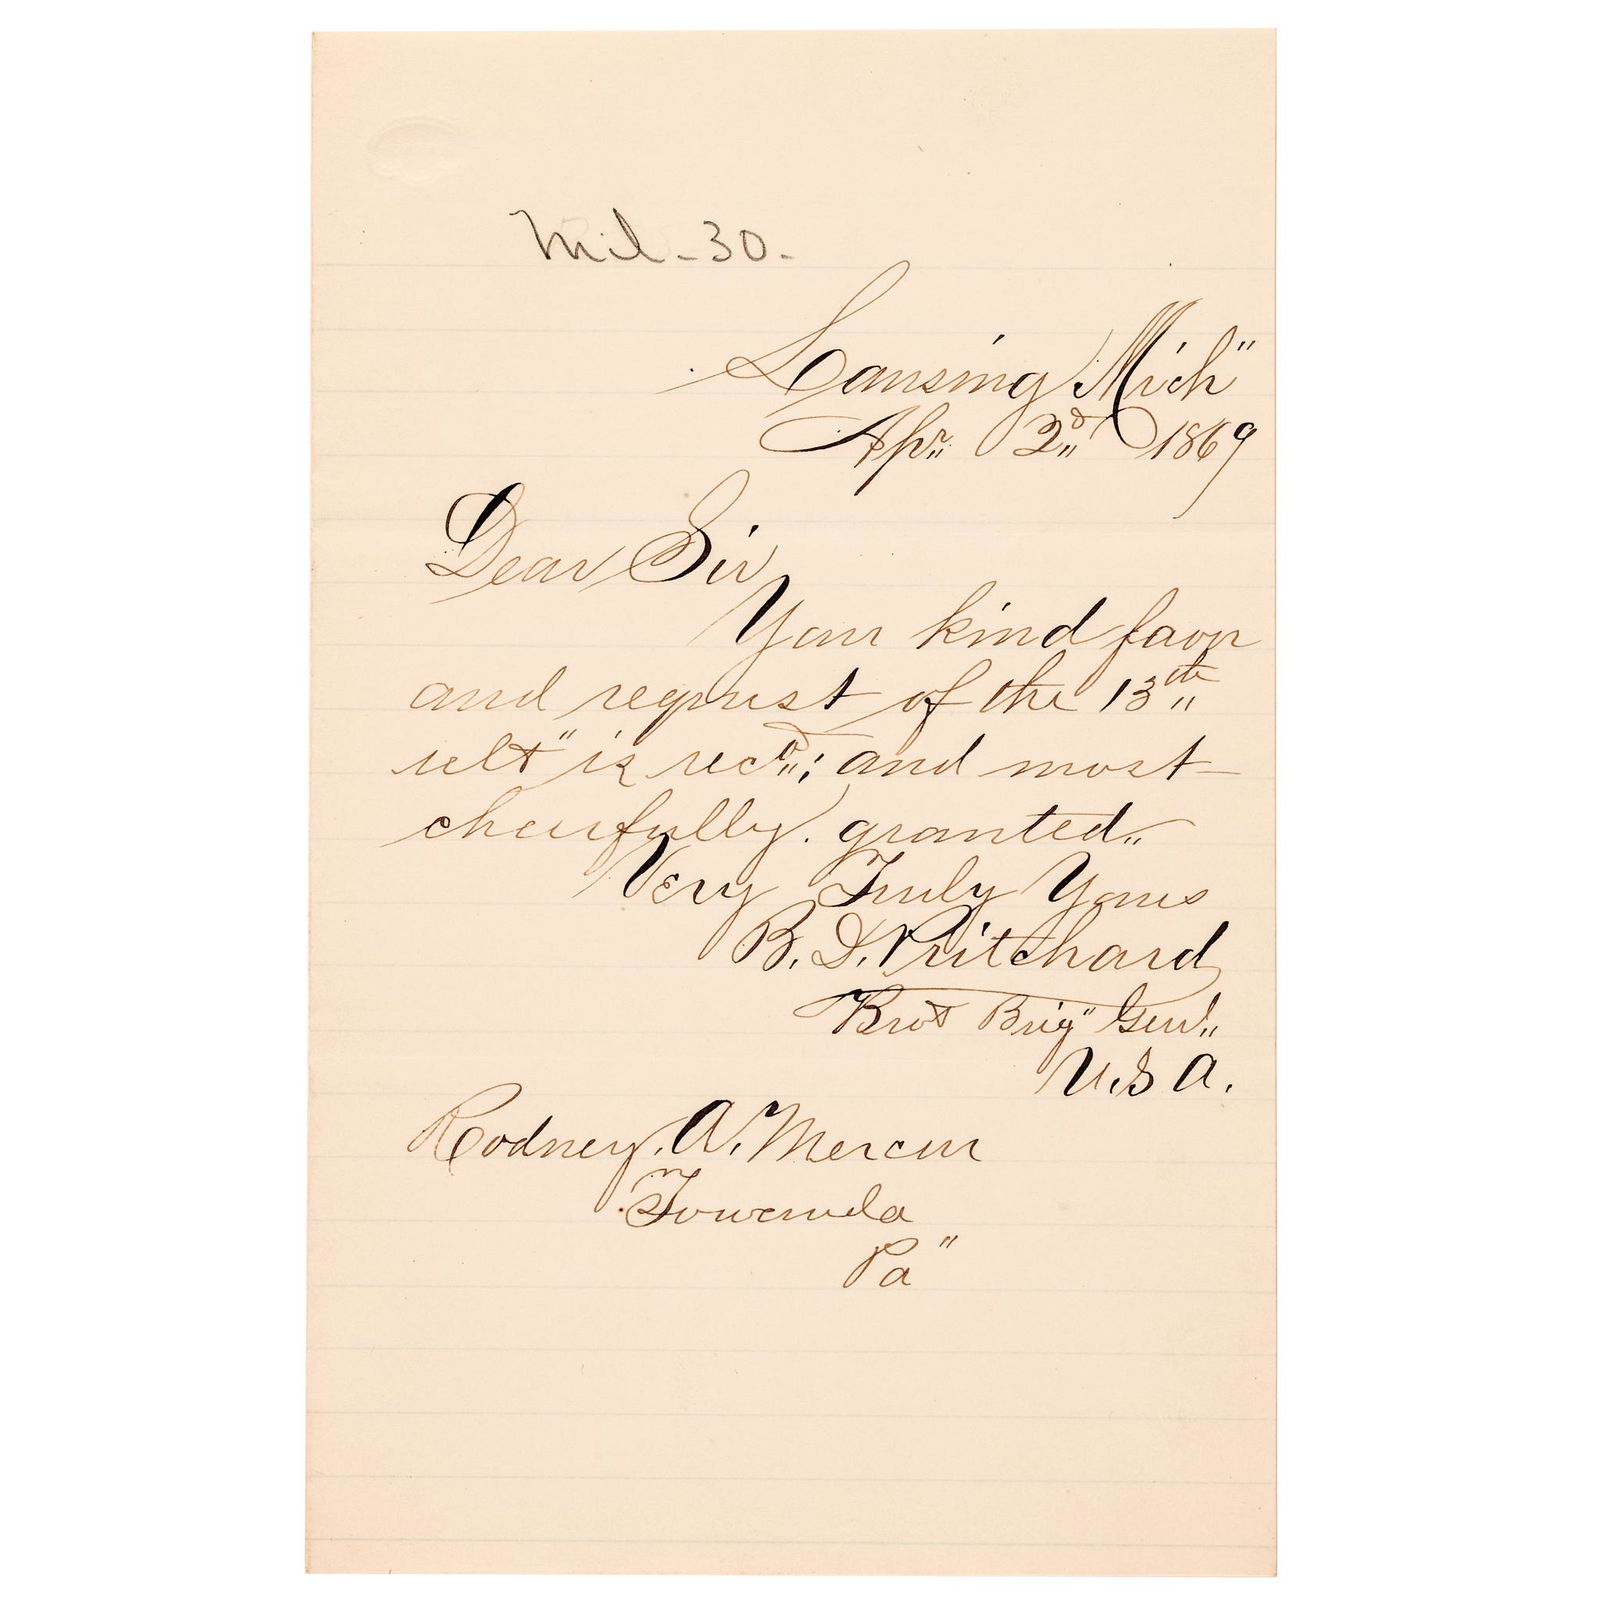 Mil-30-
Lansing Mich"
Apr" 2d" 1869
Dear Sir
Your kind favor
and request of the 13th"
ult" is recd"; and most
cheerfully. granted"
Very Truly Yours
B. D. Pritchard
Brvt Brig" Genl"
U.S A.
Rodney. A. Mercur
Towanda
Pa"